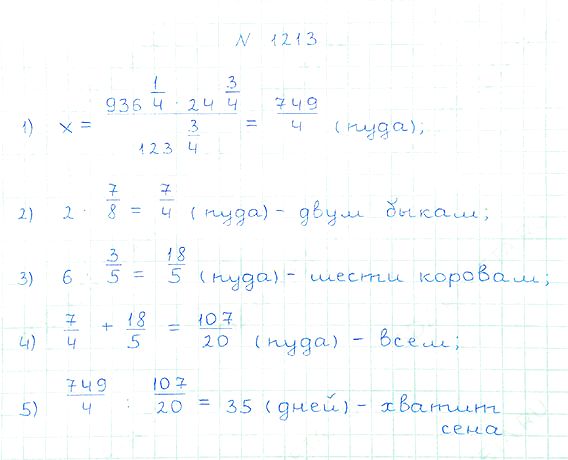 N 1213
1) x = (936 1/4 · 24 3/4) / (123 3/4) = 749/4 (пуда);
2) 2 · 7/8 = 7/4 (пуда) - двум быкам;
3) 6 · 3/5 = 18/5 (пуда) - шести коровам;
4) 7/4 + 18/5 = 107/20 (пуда) - всем;
5) 749/4 : 107/20 = 35 (дней) - хватит
сена